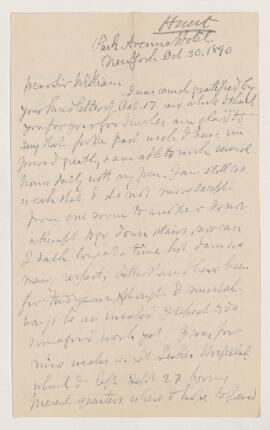 Hunt
Park Avenue Hotel
New York Oct. 30. 1890
Dear Sir William,
I was much gratified by
your kind letter of Oct 17 and while I thank
you for your kind wishes am glad to
say that for the past week I have im-
proved greatly & am able to work several
hours daily with my pen. I am still so
weak that I do not move except
from one room to another & do not
attempt to go down stairs, nor can
I talk long at a time but I am in
many respects better than I have been
for two years, though I must al-
ways be an invalid I expect to do
some good work yet. I was for
nine weeks in St Lukes Hospital
which I left Sept 27 for my
present quarters where I hope to spend